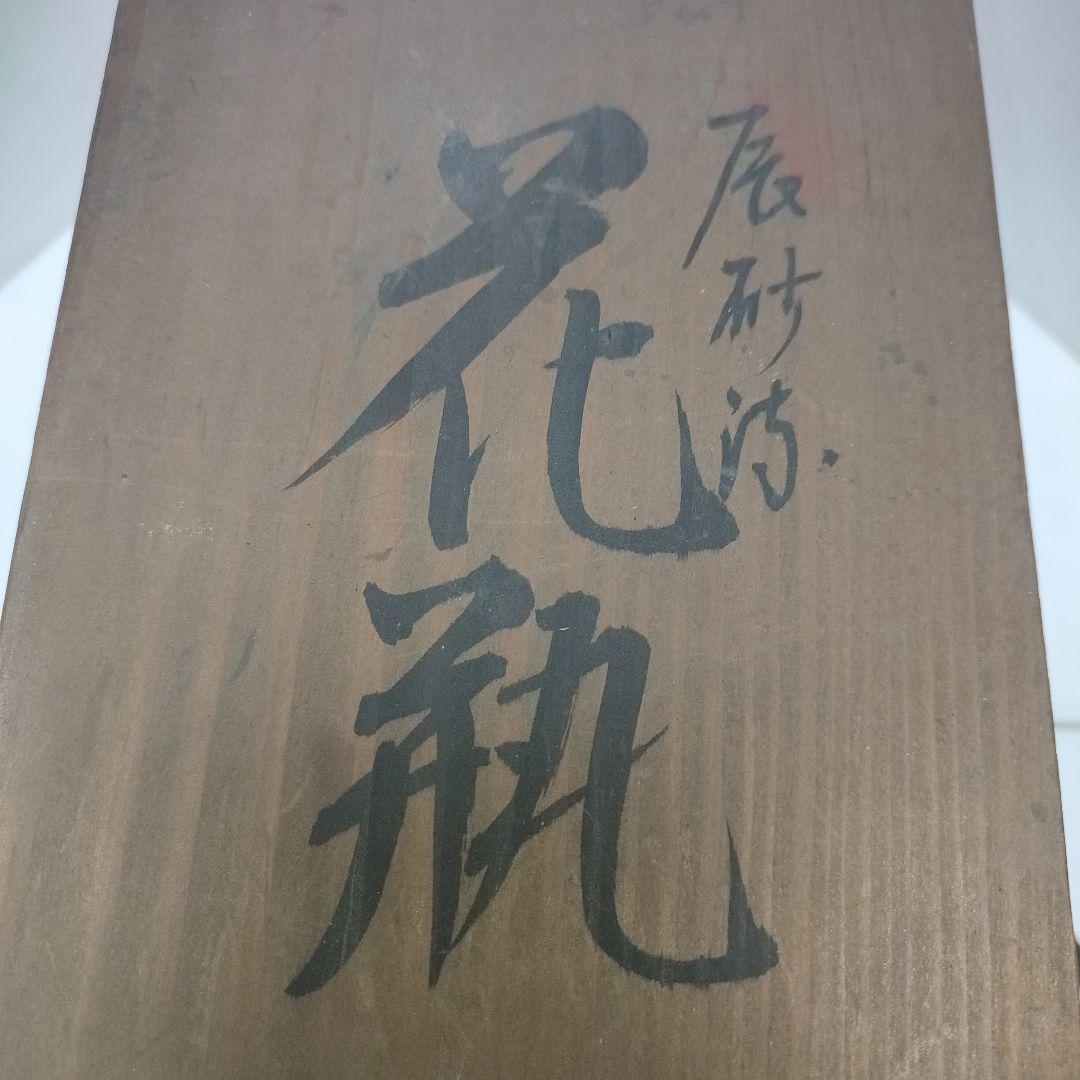 辰砂流
花瓶